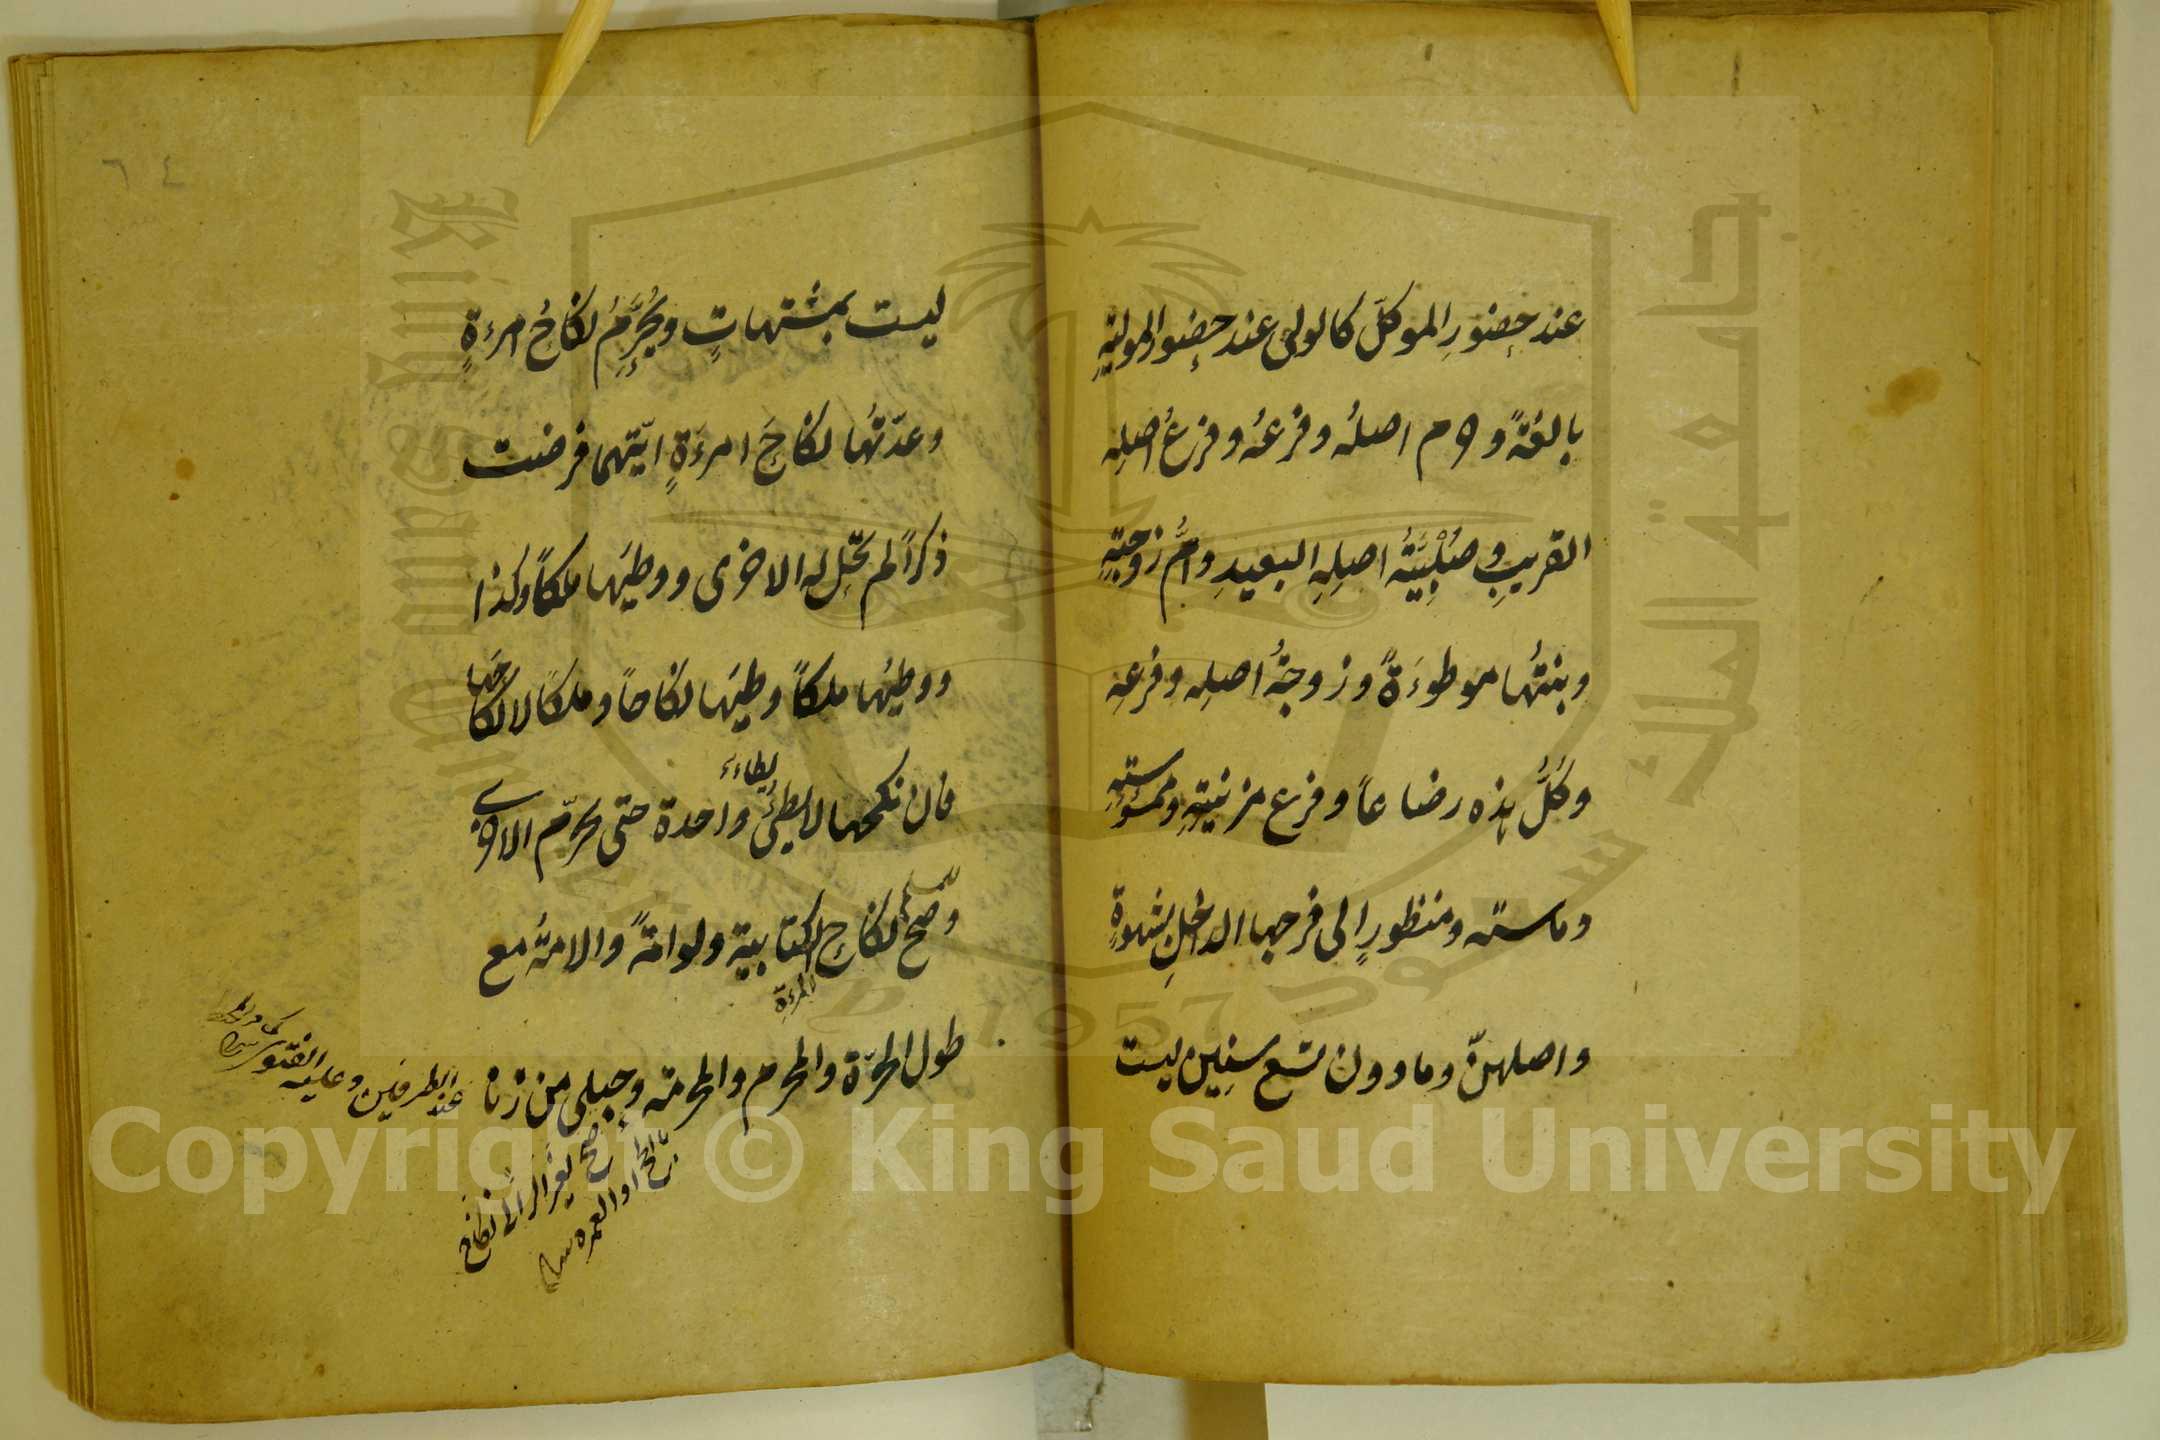 عند حضورِ الموكلّ كالولى عند حضور المولية
بالغةً وحرم اصلُه وفرعُه وفرعُ اصلِه
القريبِ وصُلْبِيَّةُ اصلِهِ البعيدِ وامُّ زوجتِهِ
وبنتُها موطوءَةً وزوجةُ اصلِه وفرعِه
وكُلُّ هذه رضاعاً وفرع مزنيتِهِ وممسوستِهِ
وماسته ومنظورٍ الى فرجها الداخلِ بشهوةٍ
واصلهنّ وما دون تسع سنِين ليست
٦٤
ليست بمشتهاتٍ ويُحَرِّمُ نكاحُ امرءَةٍ
وعدّتُها نكاحَ امرءَةٍ ايّتهما فرضت
ذكراً لم تحّل له الاخرى ووطيَها ملكاً وكذا
ووطيُها ملكاً وطيَها نكاحاً وملكاً لا نكاحَها
فان نكحها لا يطئُ واحدة حتى يحرّم الاخرى
يطاء
وصّح نكاح الكتابية ولو امةً والامةُ مع
المرءَةِ
طول الحرّة والمحرم والمحرمة وحبلى من زنا
عند الطرفين وعليه الفتوى
بالحج او العمرة
King Saud University
جامعة الملك سعود
1957
Copyright © King Saud University